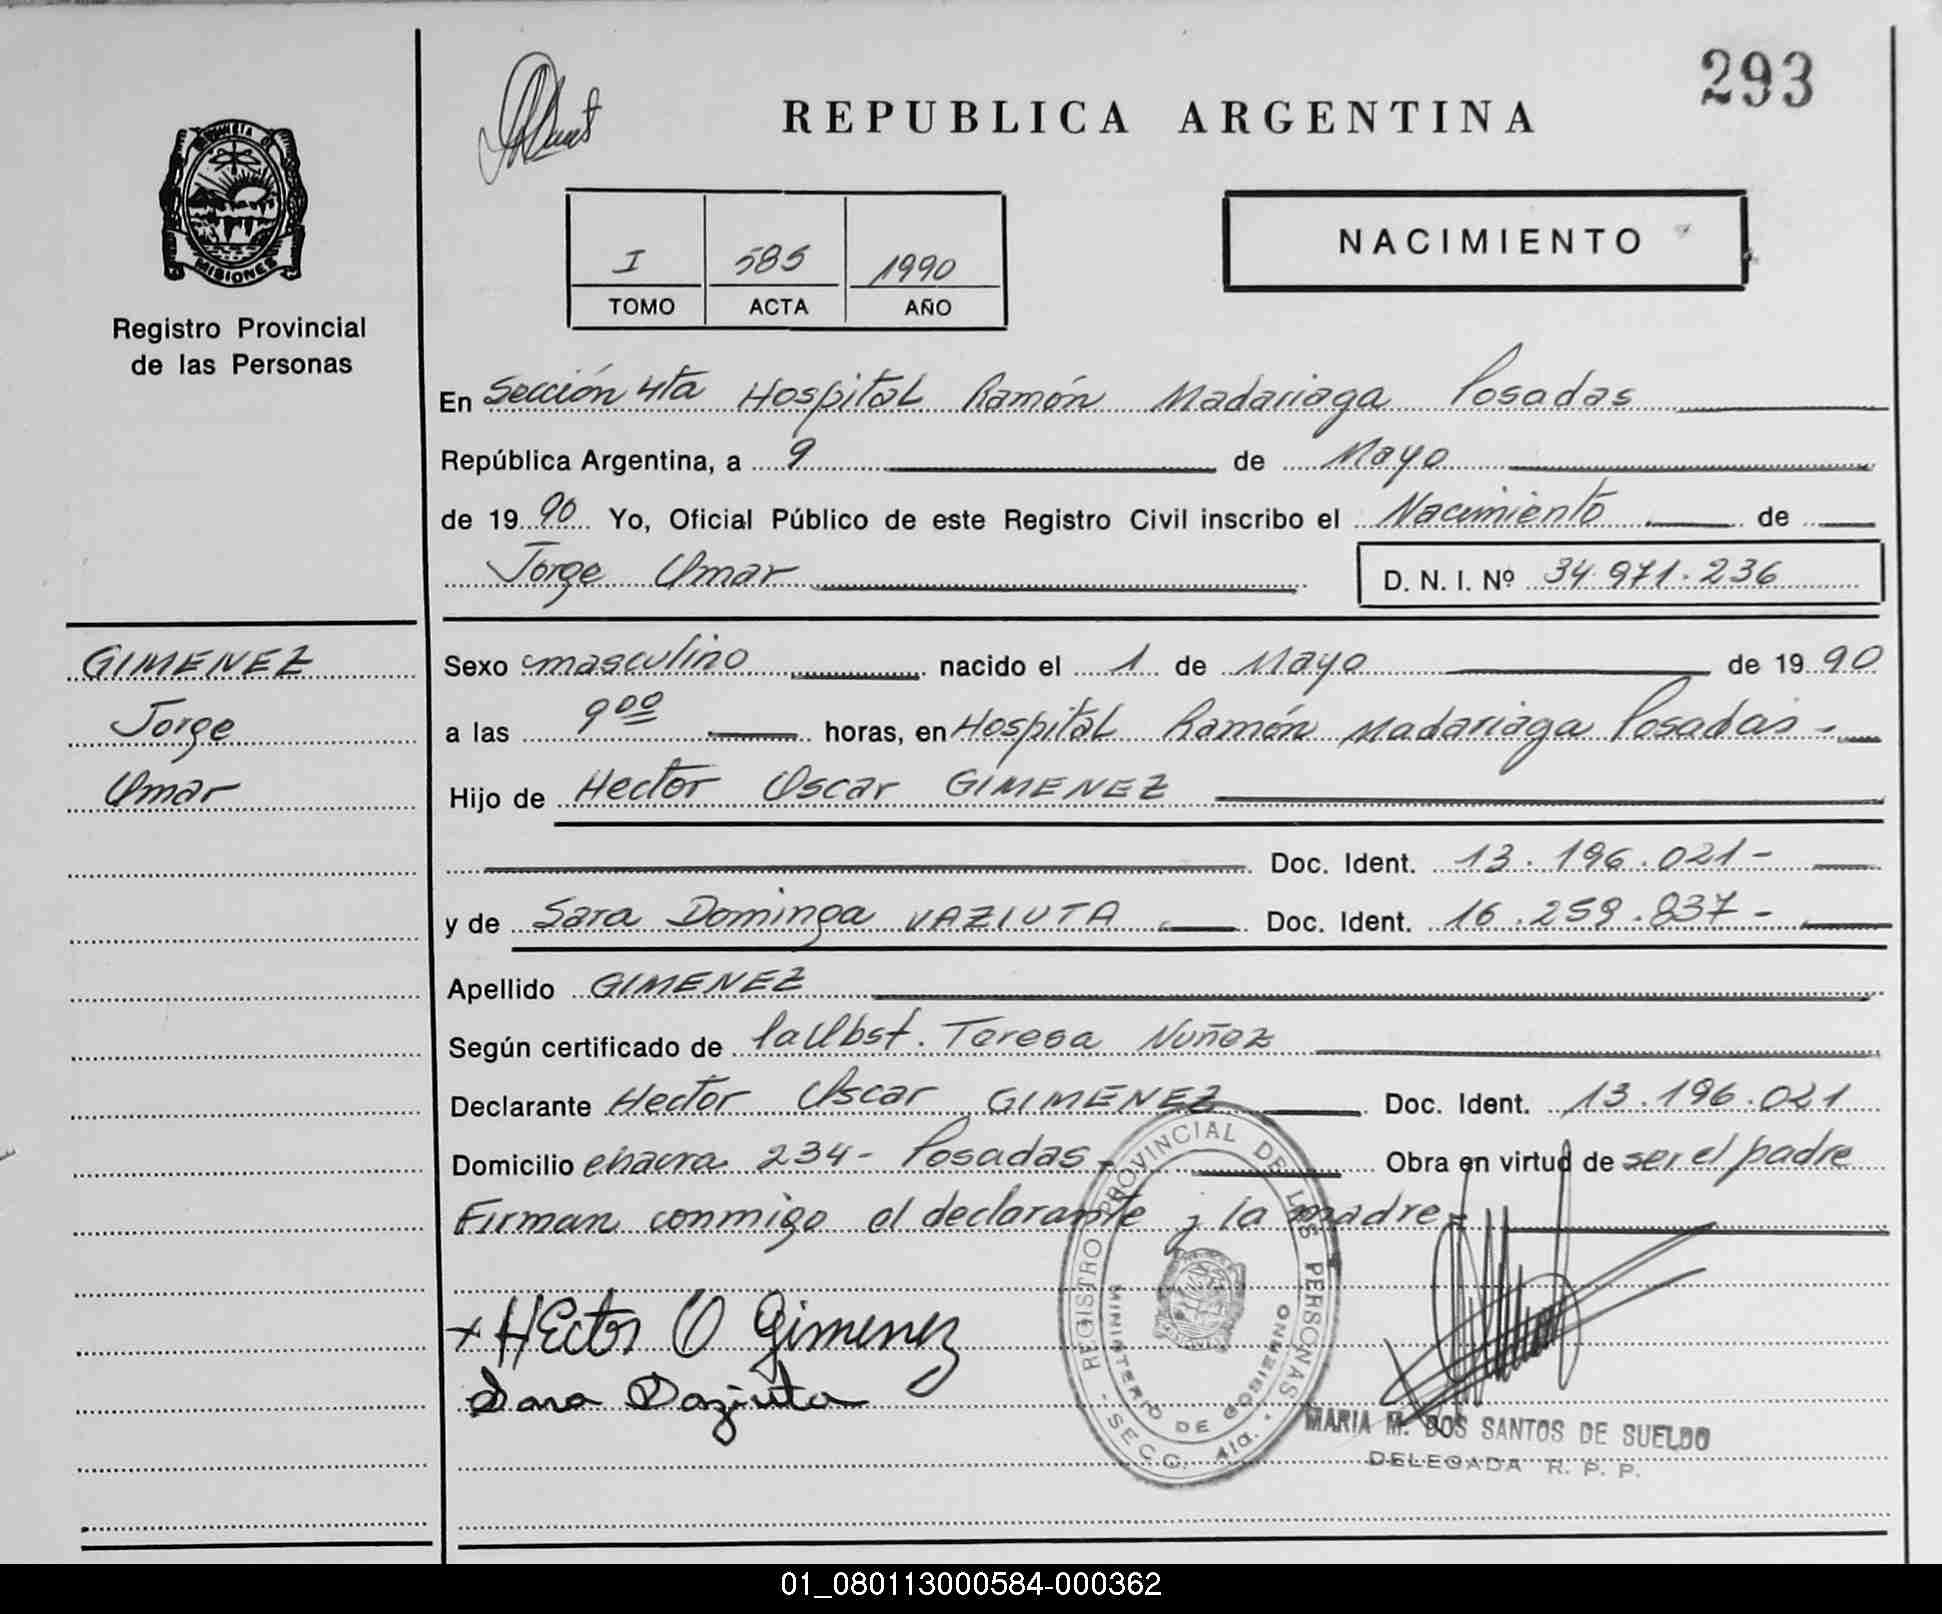 293
REPUBLICA ARGENTINA
NACIMIENTO
I 585 1990
TOMO ACTA AÑO
PROVINCIA D
MISIONES
Registro Provincial
de las Personas
En Sección 4ta Hospital Ramón Madariaga Posadas
República Argentina, a 9 de Mayo
de 1990 Yo, Oficial Público de este Registro Civil inscribo el Nacimiento de
Jorge Omar D. N. I. Nº 34.971.236
GIMENEZ
Jorge
Omar
Sexo masculino nacido el 1 de Mayo de 1990
a las 9 00 horas, en Hospital Ramón Madariaga Posadas -
Hijo de Hector Oscar GIMENEZ
Doc. Ident. 13.196.021-
y de Sara Dominga VAZIUTA Doc. Ident. 16.259.837-
Apellido GIMENEZ
Según certificado de la Obst. Teresa Nuñez
Declarante Hector Oscar GIMENEZ Doc. Ident. 13.196.021
Domicilio chacra 234- Posadas- Obra en virtud de ser el padre
Firman conmigo el declarante y la madre
x HEctor O Gimenez
Sara Daziuta
REGISTRO PROVINCIAL DE LAS PERSONAS
MINISTERIO DE GOBIERNO
- SECC. 4ta. -
MARIA M. DOS SANTOS DE SUELDO
DELEGADA R. P. P.
01_080113000584-000362